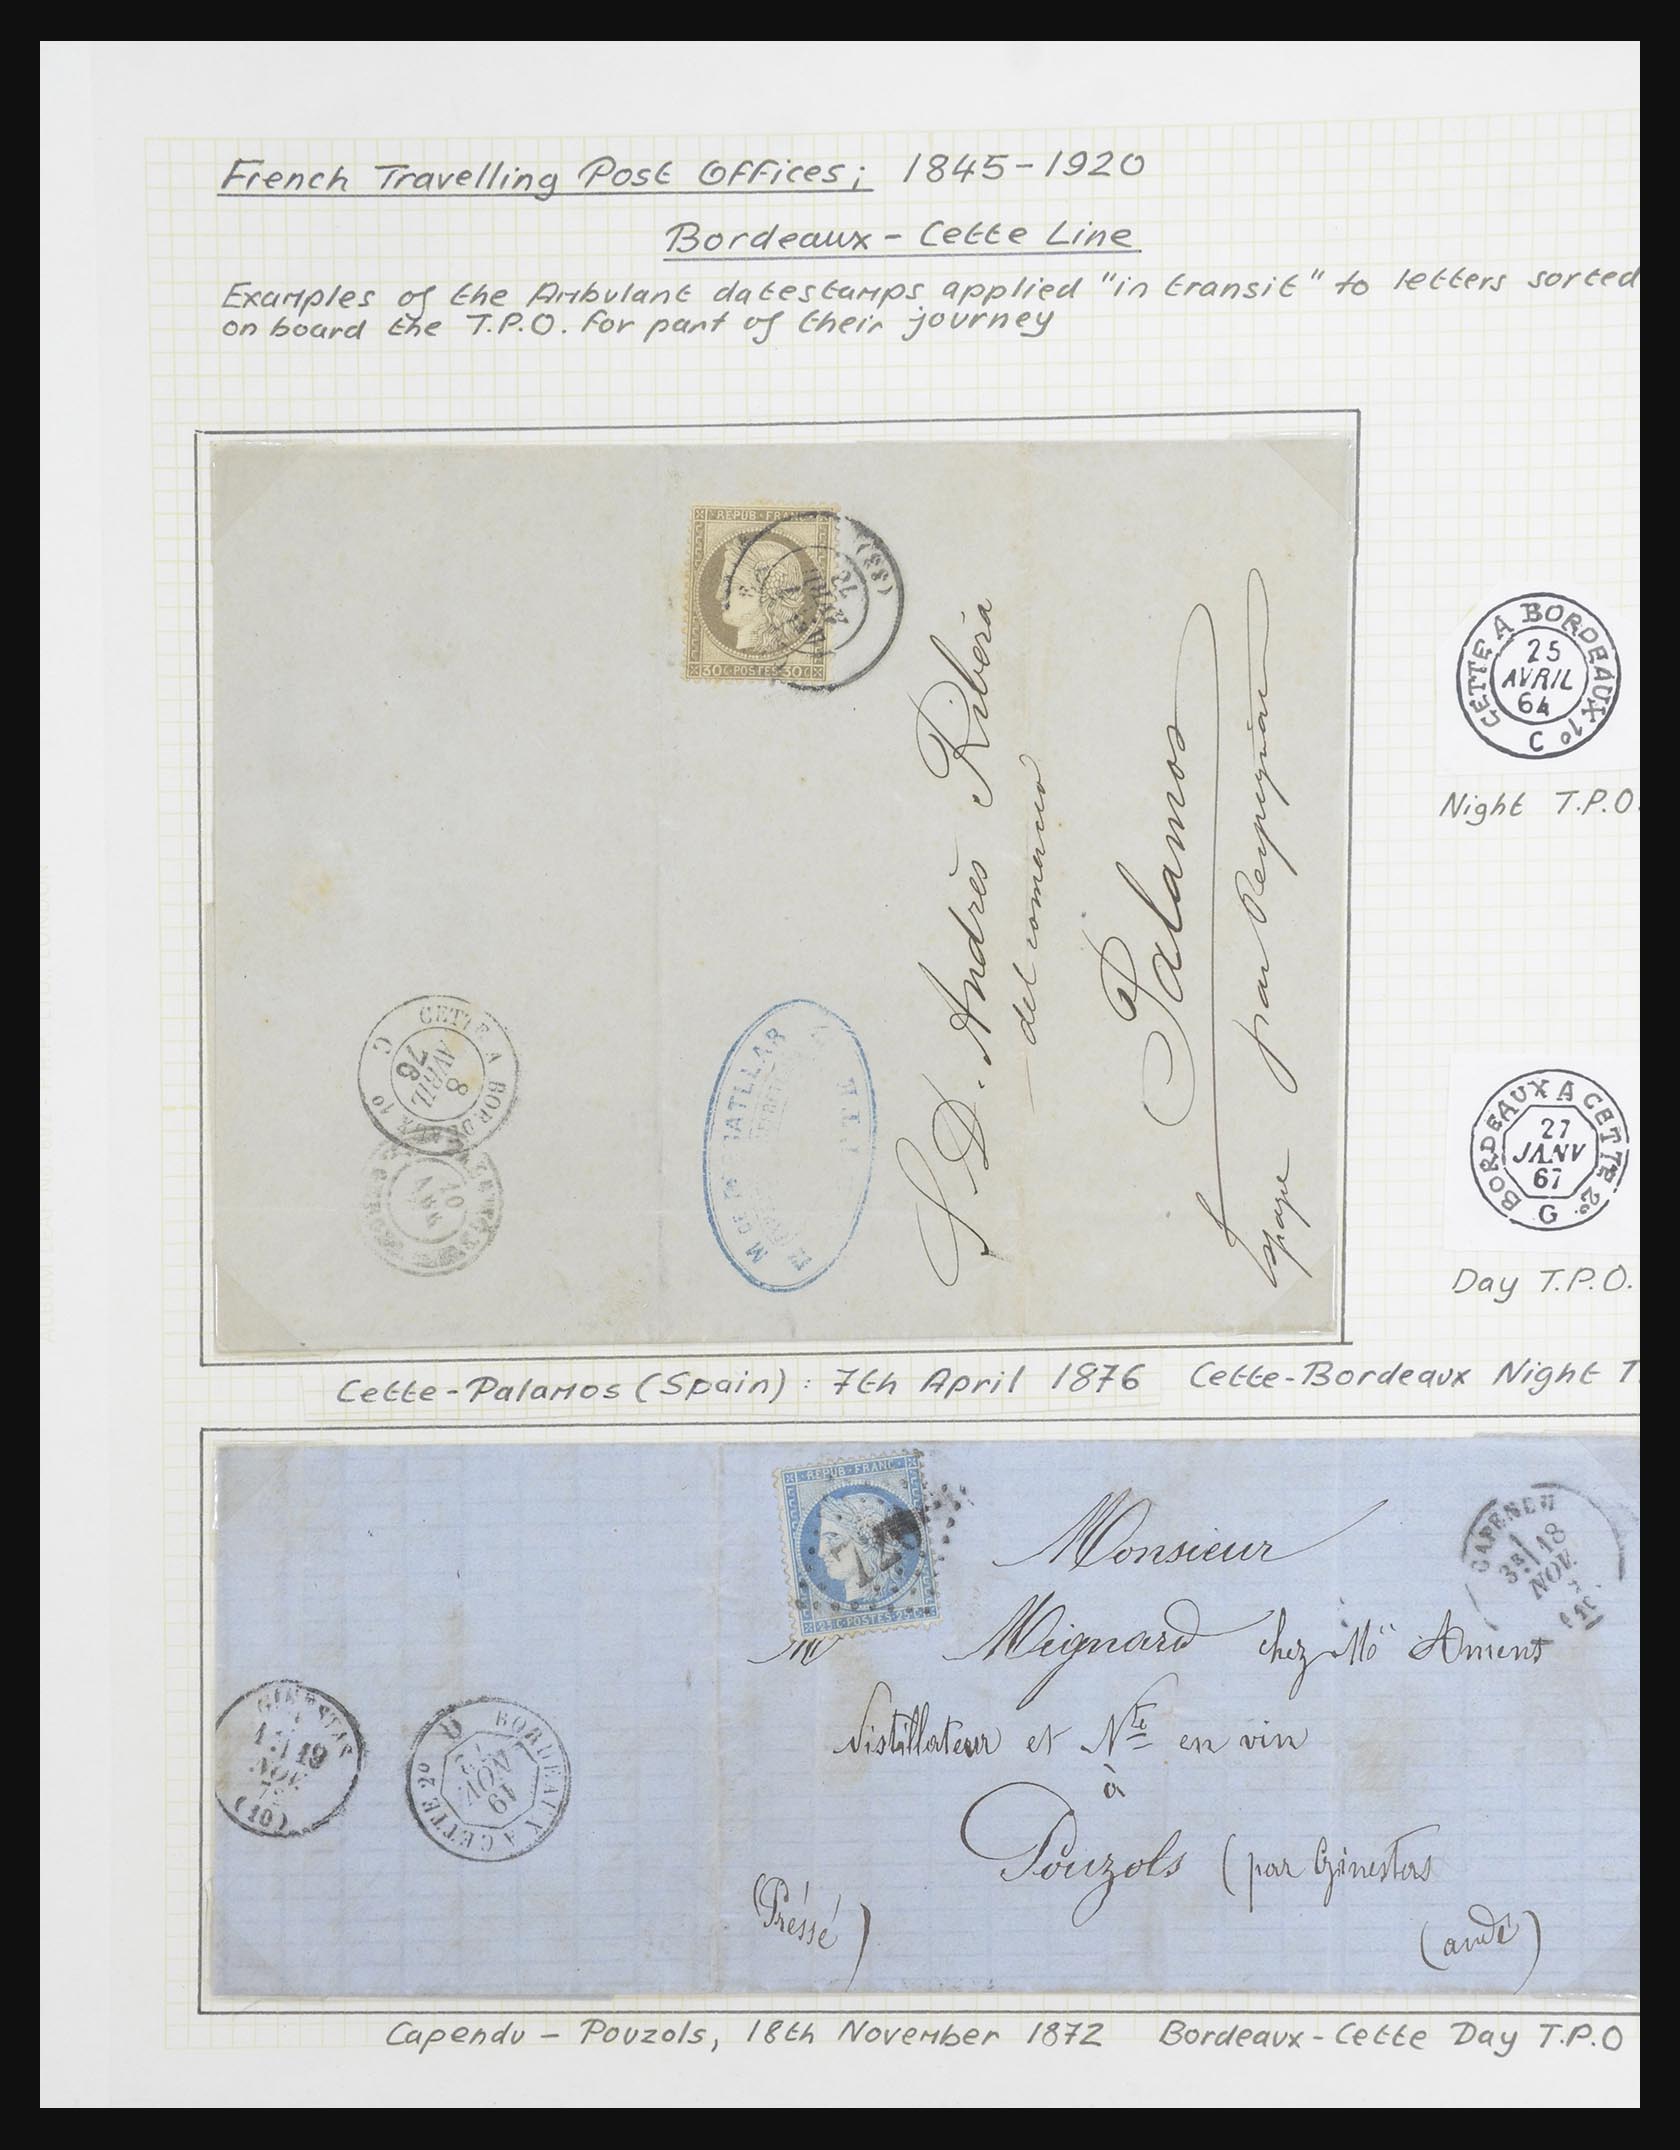 French Travelling Post Offices; 1845-1920
Bordeaux - Cette Line
Examples of the Ambulant datestamps applied "in transit" to letters sorted
on board the T.P.O. for part of their journey
REPUB · FRANC
30C · POSTES · 30C
(33)
AVRIL
S. D. Andrès Ribera
del comercio
Palamos
Espagne par Perpignan
CETTE A BORDEAUX 1º
8
AVRIL
76
G
10
ABR
CETTE A BORDEAUX 1º
25
AVRIL
64
C
Night T.P.O.
BORDEAUX A CETTE 2º
27
JANV
67
G
Day T.P.O.
Cette-Palamos (Spain): 7th April 1876 Cette-Bordeaux Night T.
REPUB · FRANC
25C · POSTES · 25C
CAPENDU
18
NOV.
Monsieur
Mignard chez Mr
Distillateur et Nt en vin
à
Pouzols (par Ginestas
(aude)
(Préssé)
GINESTAS
19
NOV.
(10)
BORDEAUX A CETTE 2º
19
NOV
72
D
Capendu - Pouzols, 18th November 1872 Bordeaux-Cette Day T.P.O